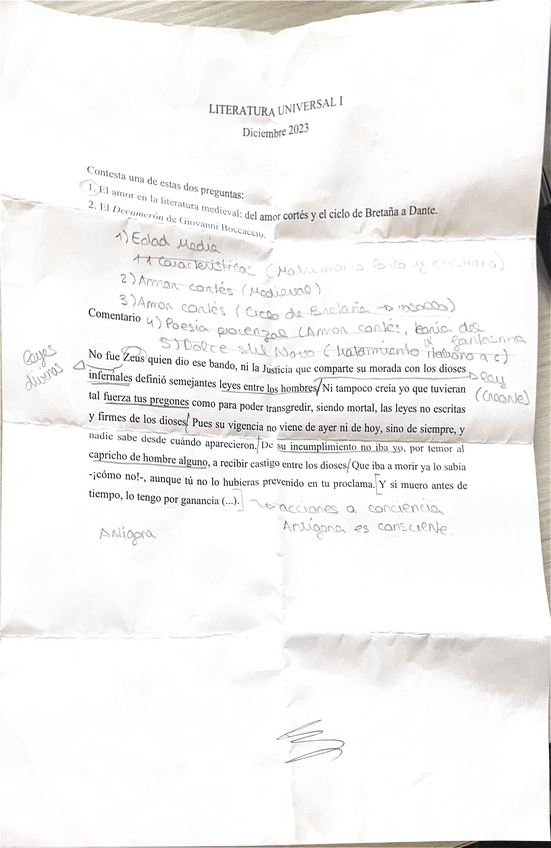 LITERATURA UNIVERSAL I
Diciembre 2023
Contesta una de estas dos preguntas:
1. El amor en la literatura medieval: del amor cortés y el ciclo de Bretaña a Dante.
2. El Decamerón de Giovanni Boccaccio.
1) Edad Media
1.1 Características (Matrimonio y cristiano)
2) Amor cortés (Medieval)
3) Amor cortés (Ciclo de Bretaña →
Comentario
4) Poesía provenzal (Amor cortés, teoría del fantasma
5) Dolce stil Novo (tratamiento italiano a c)
Leyes divinas
No fue Zeus quien dio ese bando, ni la Justicia que comparte su morada con los dioses
infernales definió semejantes leyes entre los hombres/ Ni tampoco creía yo que tuvieran
Ley (Creonte)
tal fuerza tus pregones como para poder transgredir, siendo mortal, las leyes no escritas
y firmes de los dioses/ Pues su vigencia no viene de ayer ni de hoy, sino de siempre, y
nadie sabe desde cuándo aparecieron./ De su incumplimiento no iba yo, por temor al
capricho de hombre alguno, a recibir castigo entre los dioses/ Que iba a morir ya lo sabía
-¡cómo no!-, aunque tú no lo hubieras prevenido en tu proclama. [Y si muero antes de
tiempo, lo tengo por ganancia (...).]
→ acciones a conciencia
Antígona es consciente.
Antígona